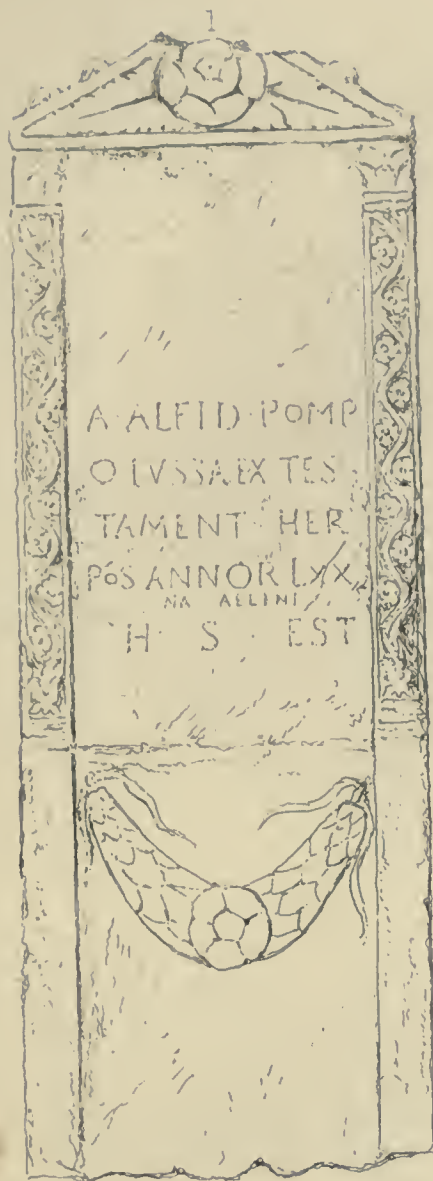 1
A · ALFID · POMP
O IVSSA EX TES
TAMENT · HER
PóS ANNOR LXX
NA AELINI
H · S · EST